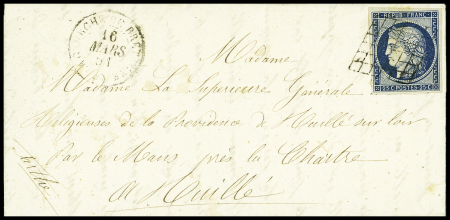 REPUB. FRANC.
25 C POSTES 25 C
16
MARS
51
Madame
Madame La Superieure Générale
Religieuses de la Providence de Ruillé sur loir
Par le Mans près la Chartre
A Ruillé